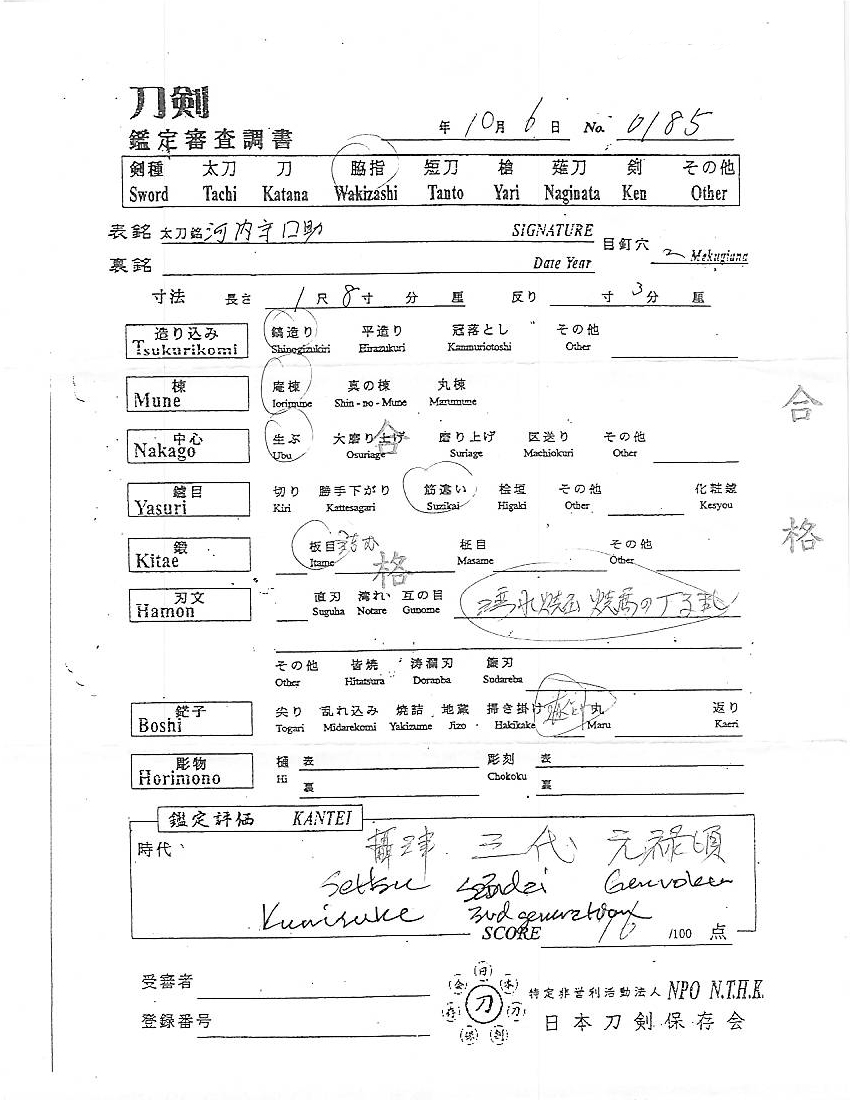 刀剣
鑑定審査調書
年 10月 6日 No. 0185
剣種 太刀 刀 脇指 短刀 槍 薙刀 剣 その他
Sword Tachi Katana Wakizashi Tanto Yari Naginata Ken Other
表銘 太刀銘 河内守口助 SIGNATURE 目釘穴 2 Mekugiana
裏銘 Date Year
寸法 長さ 1尺 8寸 分 厘 反り 寸 3分 厘
造り込み 鎬造り 平造り 冠落とし その他
Tsukurikomi Shinogizukiri Hirazukuri Kanmuriotoshi Other
棟 庵棟 真の棟 丸棟
Mune Iorimune Shin-no-Mune Marumune
合
中心 生ぶ 大磨り上げ 磨り上げ 区送り その他
Nakago Ubu Osuriage Suriage Machiokuri Other
合
鑢目 切り 勝手下がり 筋違い 桧垣 その他 化粧鑢
Yasuri Kiri Kattesagari Suzikai Higaki Other Kesyou
格
鍛 板目 柾目 その他
Kitae Itame Masame Other
格
刃文 直刃 湾れ 互の目
Hamon Suguha Notare Gunome
その他 皆焼 涛瀾刃 簾刃
Other Hitatsura Doranba Sudareba
鋩子 尖り 乱れ込み 焼詰 地蔵 掃き掛け 丸 返り
Boshi Togari Midarekomi Yakizume Jizo Hakikake Maru Kaeri
彫物 樋 表 彫刻 表
Horimono Hi 裏 Chokoku 裏
鑑定評価 KANTEI
時代 攝津 三代 元禄頃
Settsu Sandai Genroku
Kunisuke 3rd generation
SCORE 76 /100 点
受審者
登録番号
刀
特定非営利活動法人 NPO N.T.H.K.
日本刀剣保存会